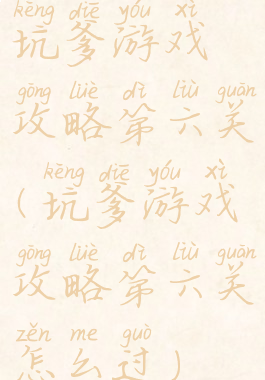 kēng diē yóu xì
坑爹游戏
gōng lüè dì liù guān
攻略第六关
kēng diē yóu xì
(坑爹游戏
gōng lüè dì liù guān
攻略第六关
zěn me guò
怎么过)